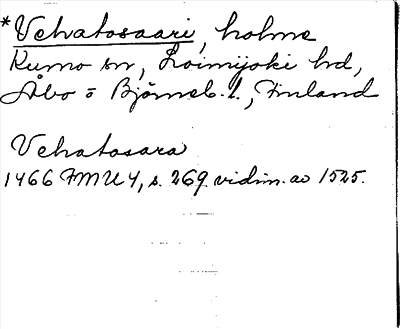 *Vehatosaari, holme
Kumo sn, Loimijoki hd,
Åbo o Björneb. l., Finland
Vehatosara
1466 FMU 4, s. 269. vidim. av 1525.